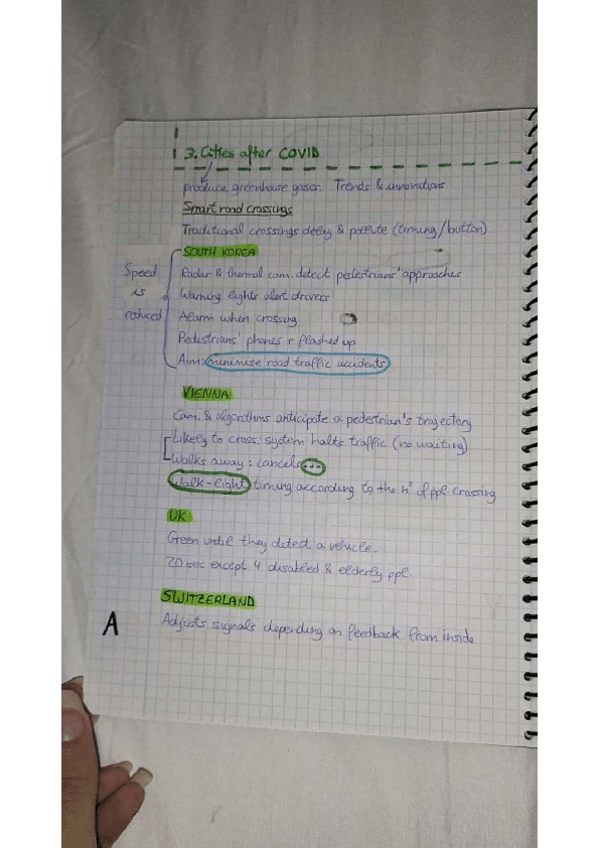 3. Cities after COVID
produce greenhouse gases. Trends & innovations
Smart road crossings
Traditional crossings delay & pollute (timing/button)
SOUTH KOREA
Speed is reduced
Radar & thermal cam. detect pedestrians' approaches
Warning lights alert drivers
Alarm when crossing
Pedestrians' phones r flashed up
Aim: minimise road traffic accidents
VIENNA
Cam. & algorithms anticipate a pedestrian's trajectory
Likely to cross: system halts traffic (no waiting)
Walks away: cancels ...
Walk-light timing according to the nº of ppl. crossing
UK
Green until they detect a vehicle.
20 sec except 4 disabled & elderly ppl.
SWITZERLAND
A
Adjusts signals depending on feedback from inside